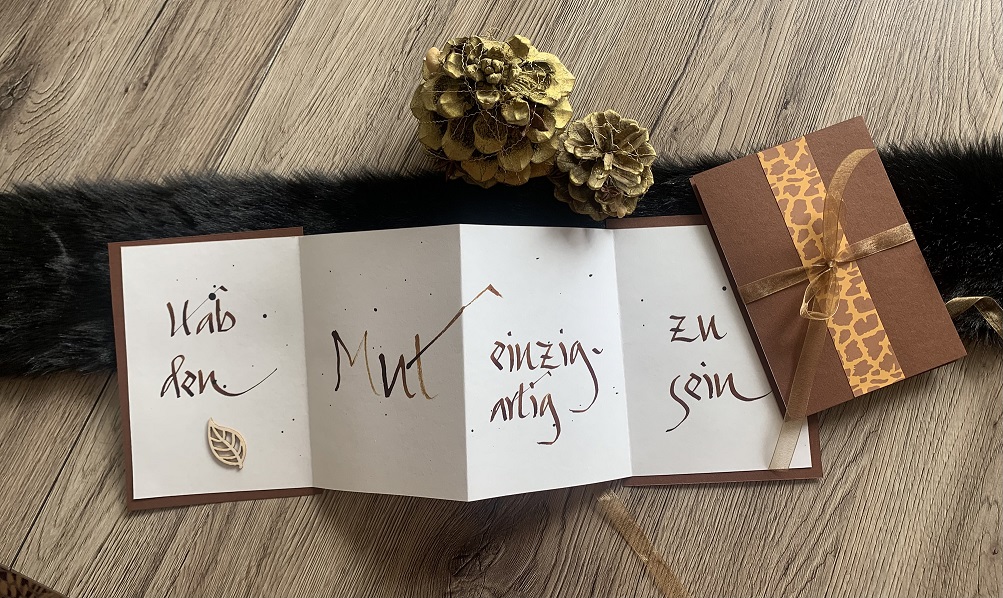 Hab
den
Mut
einzig-
artig
zu
sein